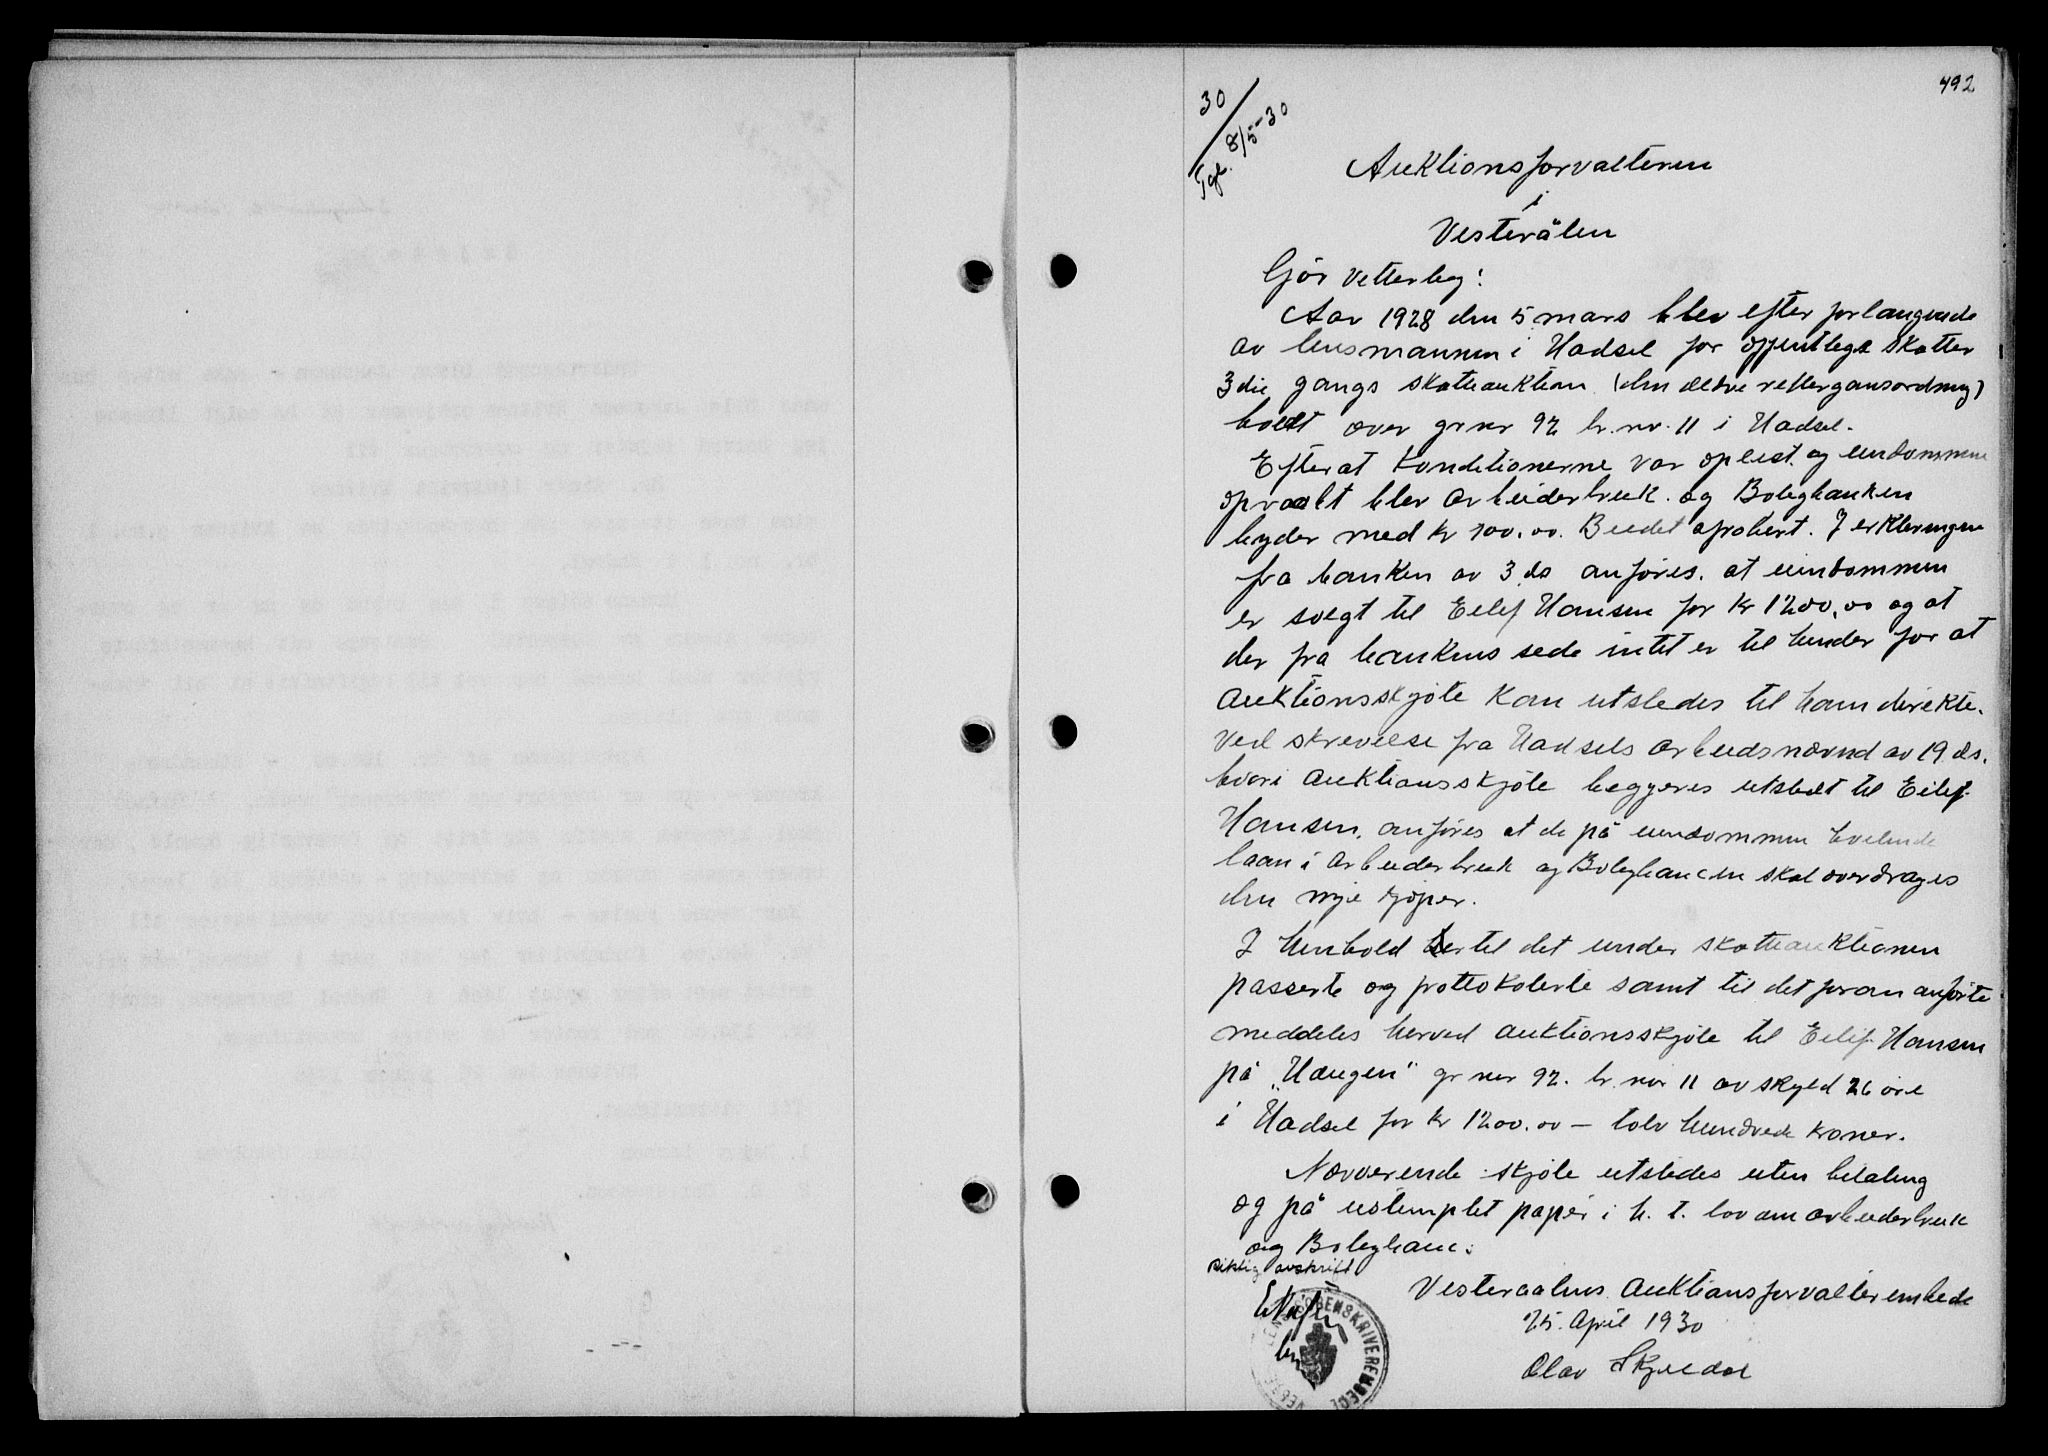 492
30
Tgl. 8/5-30
Auktionsforvalteren
i
Vesterålen
Gjör vetterleg:
Aar 1928 den 5 mars blev efter forlangende
av lensmannen i Hadsel for offentlege skatter
3die gangs skatteauktion (den ældre rettergansordning)
holdt over gr nr 92 br. nr. 11 i Hadsel.
Efter at konditionerne var oplest og eiendommen
opraabt blev Arbeiderbruk og Boligbanken
byder med kr 100.00. Budet aprobert. I erkleringen
fra banken av 3 ds anföres. at eiendommen
er solgt til Eilif Hansen for kr 1200.00 og at
der fra bankens side intet er til hinder for at
auktionsskjöte kan utstedes til ham direkte.
Ved skrivelse fra Hadsels arbeidsnævnd av 19 ds.
hvori auktionsskjöte begjæres utstedt til Eilif
Hansen, anföres at de på eiendommen hvilende
laan i Arbeiderbruk og Boligbanken skal overdrages
den nye kjöper.
I henhold hertil det under skatteauktionen
passerte og prottokolerte samt til det foran anförte
meddeles herved auktionsskjöte til Eilif Hansen
på "Haugen" gr nr 92. br. nr 11 av skyld 26 öre
i Hadsel for kr 1200.00 — tolv hundrede kroner.
Nærværende skjöte utstedes uten betaling
og på ustemplet papir i h. t. lov om arbeiderbruk
og Boligbank.
riktig avskrift
Vesteraalens Auktionsforvalterembede
25. April 1930
Olav Skjeldal
SORENSKRIVEREMBEDE